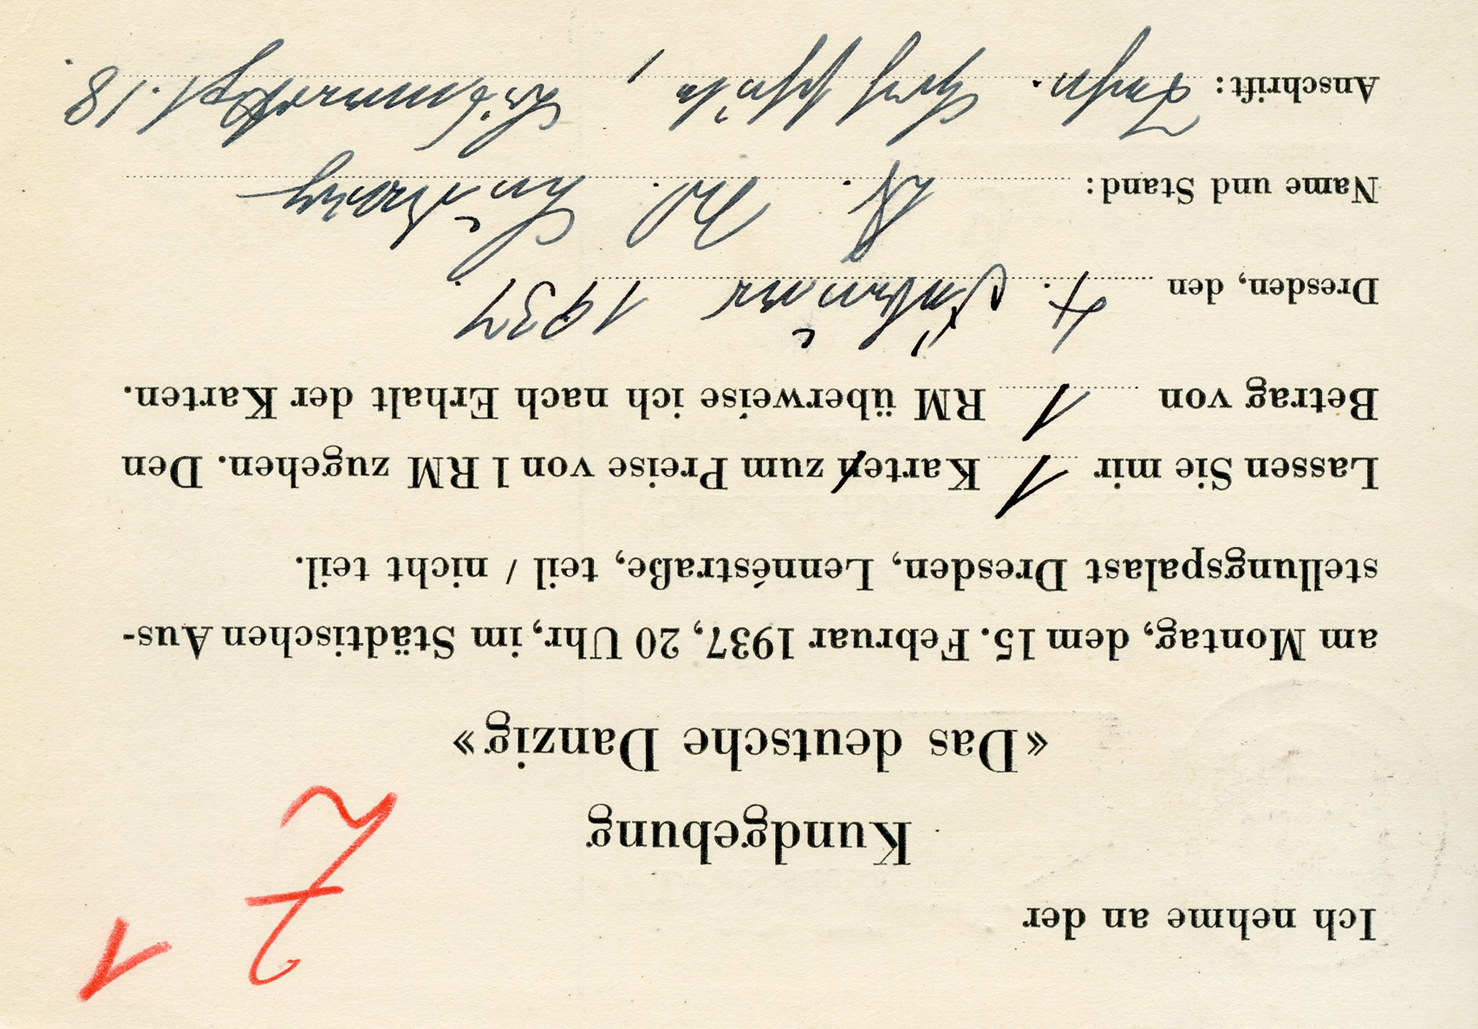 Z 1
Ich nehme an der
Kundgebung
«Das deutsche Danzig»
am Montag, dem 15. Februar 1937, 20 Uhr, im Städtischen Aus-
stellungspalast Dresden, Lennéstraße, teil / nicht teil.
Lassen Sie mir 1 Karten zum Preise von 1 RM zugehen. Den
Betrag von 1 RM überweise ich nach Erhalt der Karten.
Dresden, den 4. Februar 1937
Name und Stand: Dr. Phil.
Anschrift: Techn. Hochschule, Bismarckpl. 18.